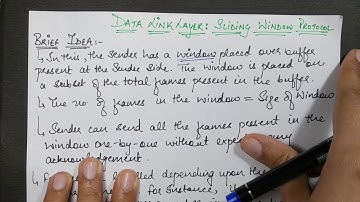 DATA LINK LAYER: SLIDING WINDOW PROTOCOL
BRIEF IDEA:-
↳ In this, the sender has a window placed over buffer
present at the sender side. The window is placed on
a subset of the total frames present in the buffer.
↳ The no of frames in the window = Size of window
↳ Sender can send all the frames present in the
window one-by-one without any
acknowledgement.
depending upon the
for instance,